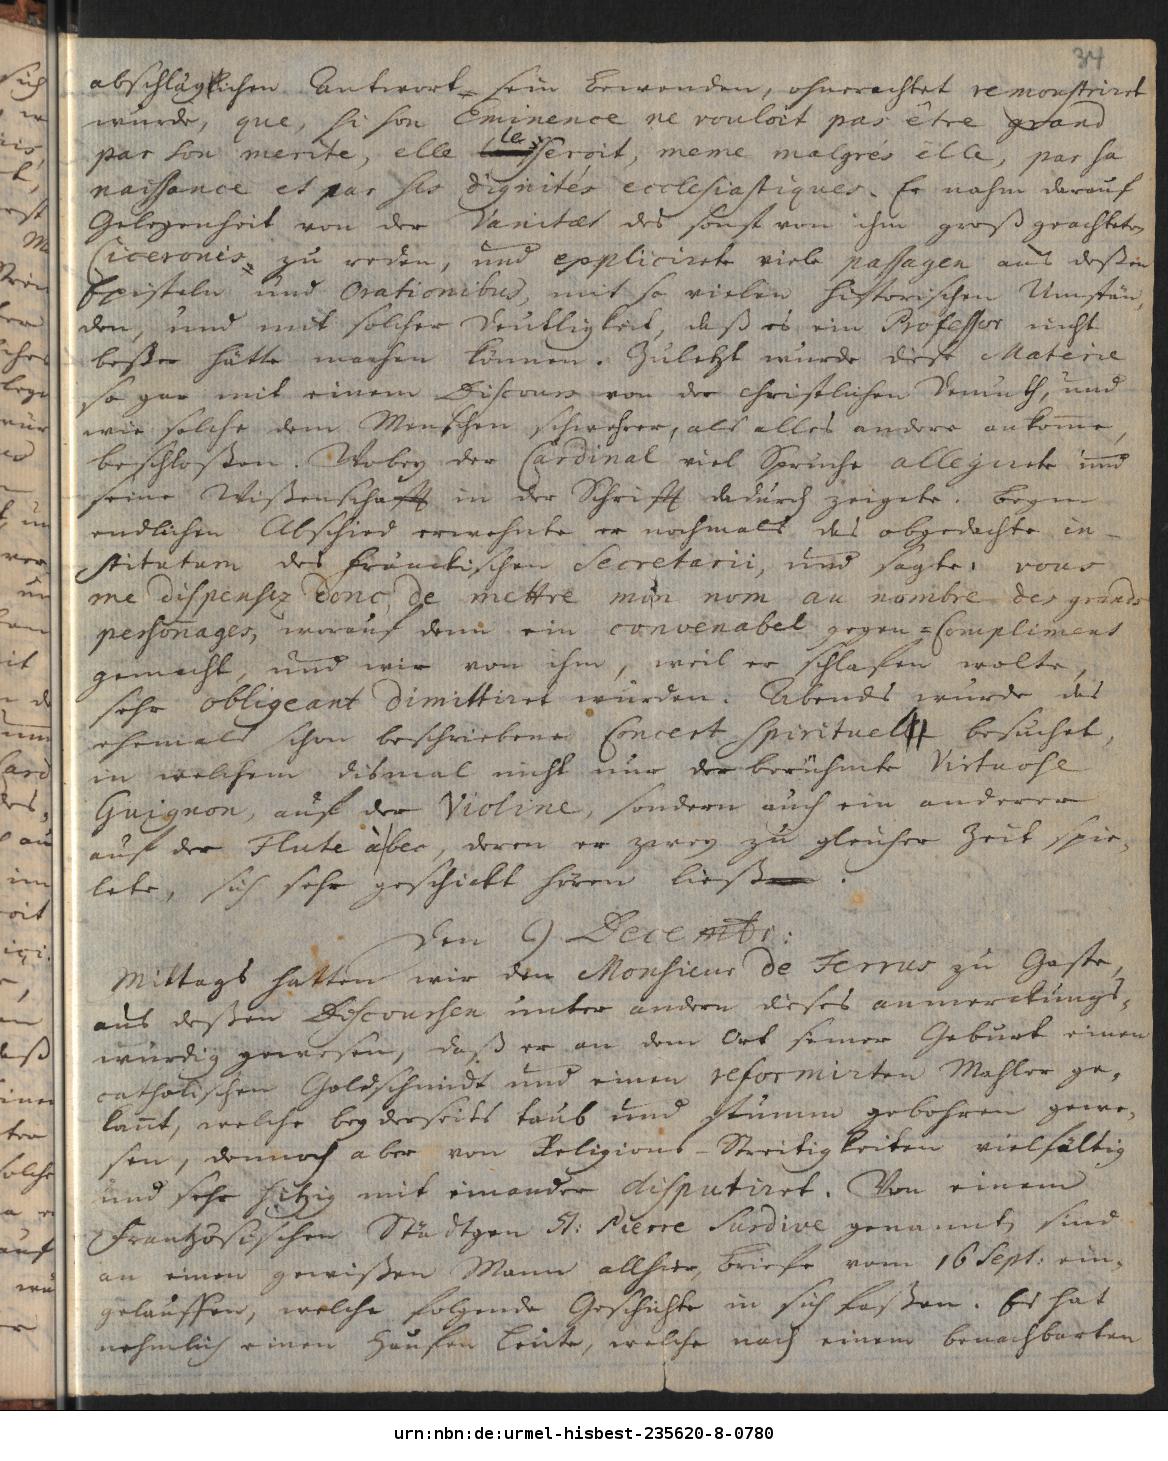 34
abschläglichen Antwort sein bewenden, ohnerachtet remonstriret
wurde, que, si son Eminence ne vouloit pas être grand
par son merite, elle le seroit, meme malgrés elle, par sa
naissance et par ses dignités ecclesiastiques. Er nahm darauf
Gelegenheit von der Vanitæt des sonst von ihm groß geachteten
Ciceronis zu reden, und explicirte viele passagen aus deßen
Episteln und Orationibus, mit so vielen historischen Umstän,
den, und mit solcher Deutligkeit, daß es ein Professor nicht
beßer hätte machen können. Zuletzt wurde diese Materie
so gar mit einem Discours von der christlichen Demuth, und
wie solche dem Menschen schwehrer, als alles andere ankom̄e,
beschloßen. Wobey der Cardinal viel Sprüche allegirte und
seine Wißenschafft in der Schrifft dadurch zeigete. Beym
endlichen Abschied erwehnte er nochmals das obgedachte in-
stitutum des Fränckischen Secretarii, und sagte: vous
me dispensez donc, de mettre mon nom au nombre des grands
personnages, worauf denn ein convenabel gegen=Compliment
gemacht, und wir von ihm, weil er schlafen wolte,
sehr obligeant dimittiret wurden. Abends wurde das
ehemals schon beschriebene Concert spirituel besuchet,
in welchem dismal nicht nur der berühmte Virtuose
Guignon, auf der Violine, sondern auch ein anderer
auf der Flute à bec, deren er zwey zu gleicher Zeit spie,
lete, sich sehr geschickt hören ließ.
Den 9 Decembr:
Mittags hatten wir den Monsieur de Ferrus zu Gaste,
aus deßen Discoursen unter andern dieses anmerckungs,
würdig gewesen, daß er an dem Ort seiner Geburt einen
catholischen Goldschmidt und einen reformirten Mahler ge,
kan̄t, welche beyderseits taub und stumm gebohren gewe,
sen, dennoch aber von Religions-Streitigkeiten vielfältig
und sehr hitzig mit einander disputiret. Von einem
Frantzösischen Städtgen St: Pierre Surdive genannt, sind
an einen gewißen Mann allhier, Briefe vom 16 Sept: ein,
gelauffen, welche folgende Geschichte in sich faßen. Es hat
nehmlich einen Hauffen Leute, welche nach einem benachbarten
urn:nbn:de:urmel-hisbest-235620-8-0780